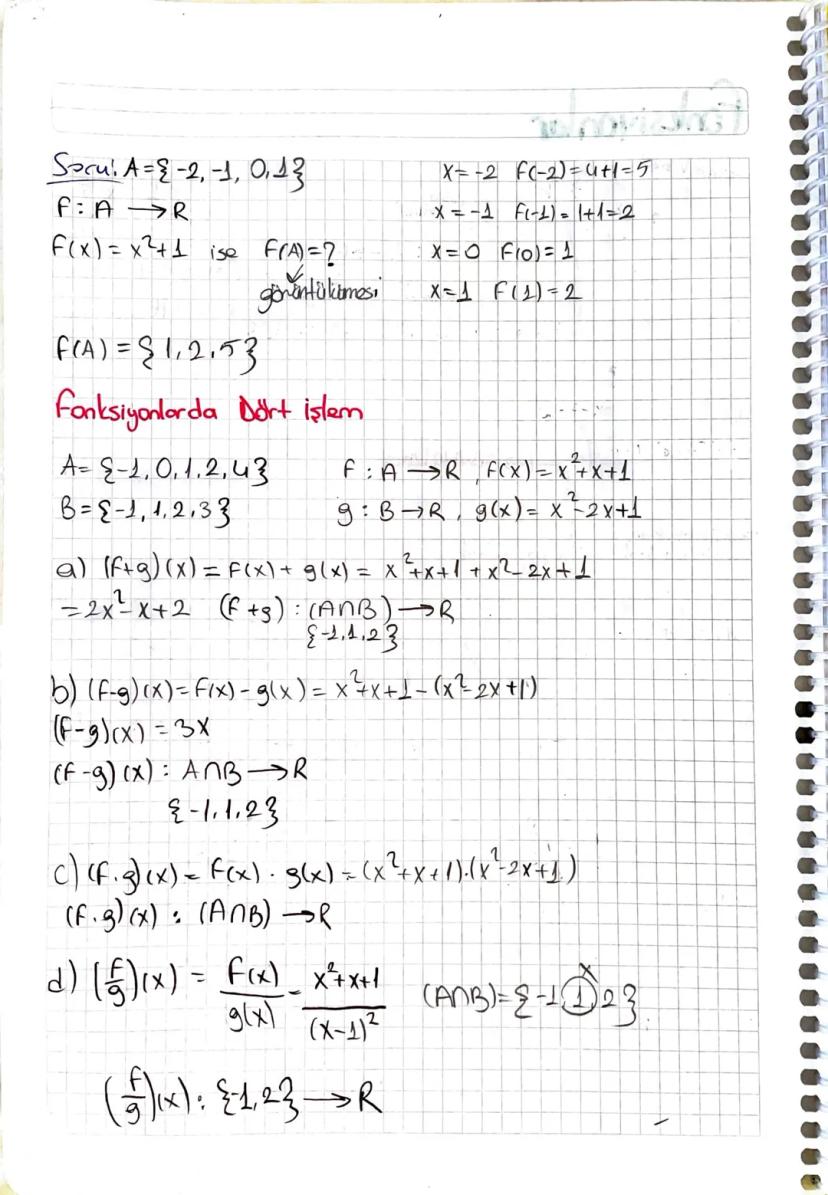 Soru: A={-2,-1,0,1}
f: A → R
f(x) = x²+1 ise f(A)=?
görüntü kümesi
x=-2 f(-2)=4+1=5
x=-1 f(-1)=1+1=2
x=0 f(0)=1
x=1 f(1)=2
f(A) = {1,2,5}
Fonksiyonlarda Dört işlem
A={-1,0,1,2,4} f: A → R, f(x)=x²+x+1
B={-1,1,2,3} g: B → R, g(x)=x²-2x+1
a) (f+g)(x) = f(x)+g(x) = x²+x+1+x²-2x+1
=2x²-x+2 (f+g): (A∩B) → R
{-1,1,2}
b) (f-g)(x)=f(x)-g(x)=x²+x+1-(x²-2x+1)
(f-g)(x) = 3x
(f-g)(x): A∩B → R
{-1,1,2}
c) (f.g)(x)=f(x).g(x)=(x²+x+1).(x²-2x+1)
(f.g)(x): (A∩B) → R
d) (f/g)(x) = f(x)/g(x) = x²+x+1/(x-1)² (A∩B)={-1,1,2}
x
(f/g)(x): {-1,2} → R